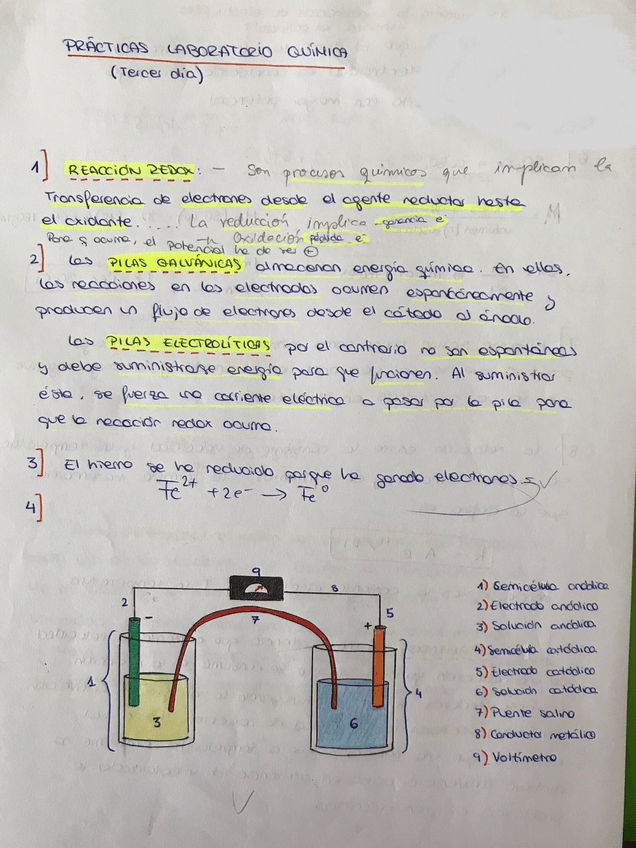 PRÁCTICAS LABORATORIO QUÍMICA
(Tercer día)
1] REACCIÓN REDOX: - Son procesos químicos que implican la
Transferencia de electrones desde el agente reductor hasta
el oxidante. .... (La reducción implica ganancia e-
Para q ocurra, el potencial ha de ser ⊕
la Oxidación pérdida e-
2] Las PILAS GALVÁNICAS almacenan energía química. En ellas,
las reacciones en los electrodos ocurren espontáneamente y
producen un flujo de electrones desde el cátodo al ánodo.
Las PILAS ELECTROLÍTICAS por el contrario no son espontáneas
y debe suministrarse energía para que funcionen. Al suministrar
ésta, se fuerza una corriente eléctrica a pasar por la pila para
que la reacción redox ocurra.
3] El hierro se ha reducido porque ha ganado electrones
Fe2+ + 2e- → Fe0
4]
9
2
-
7
8
+
5
1
3
6
4
1) Semicélula anódica
2) Electrodo anódico
3) Solución anódica
4) Semicélula catódica
5) Electrodo catódico
6) Solución catódica
7) Puente salino
8) Conductor metálico
9) Voltímetro